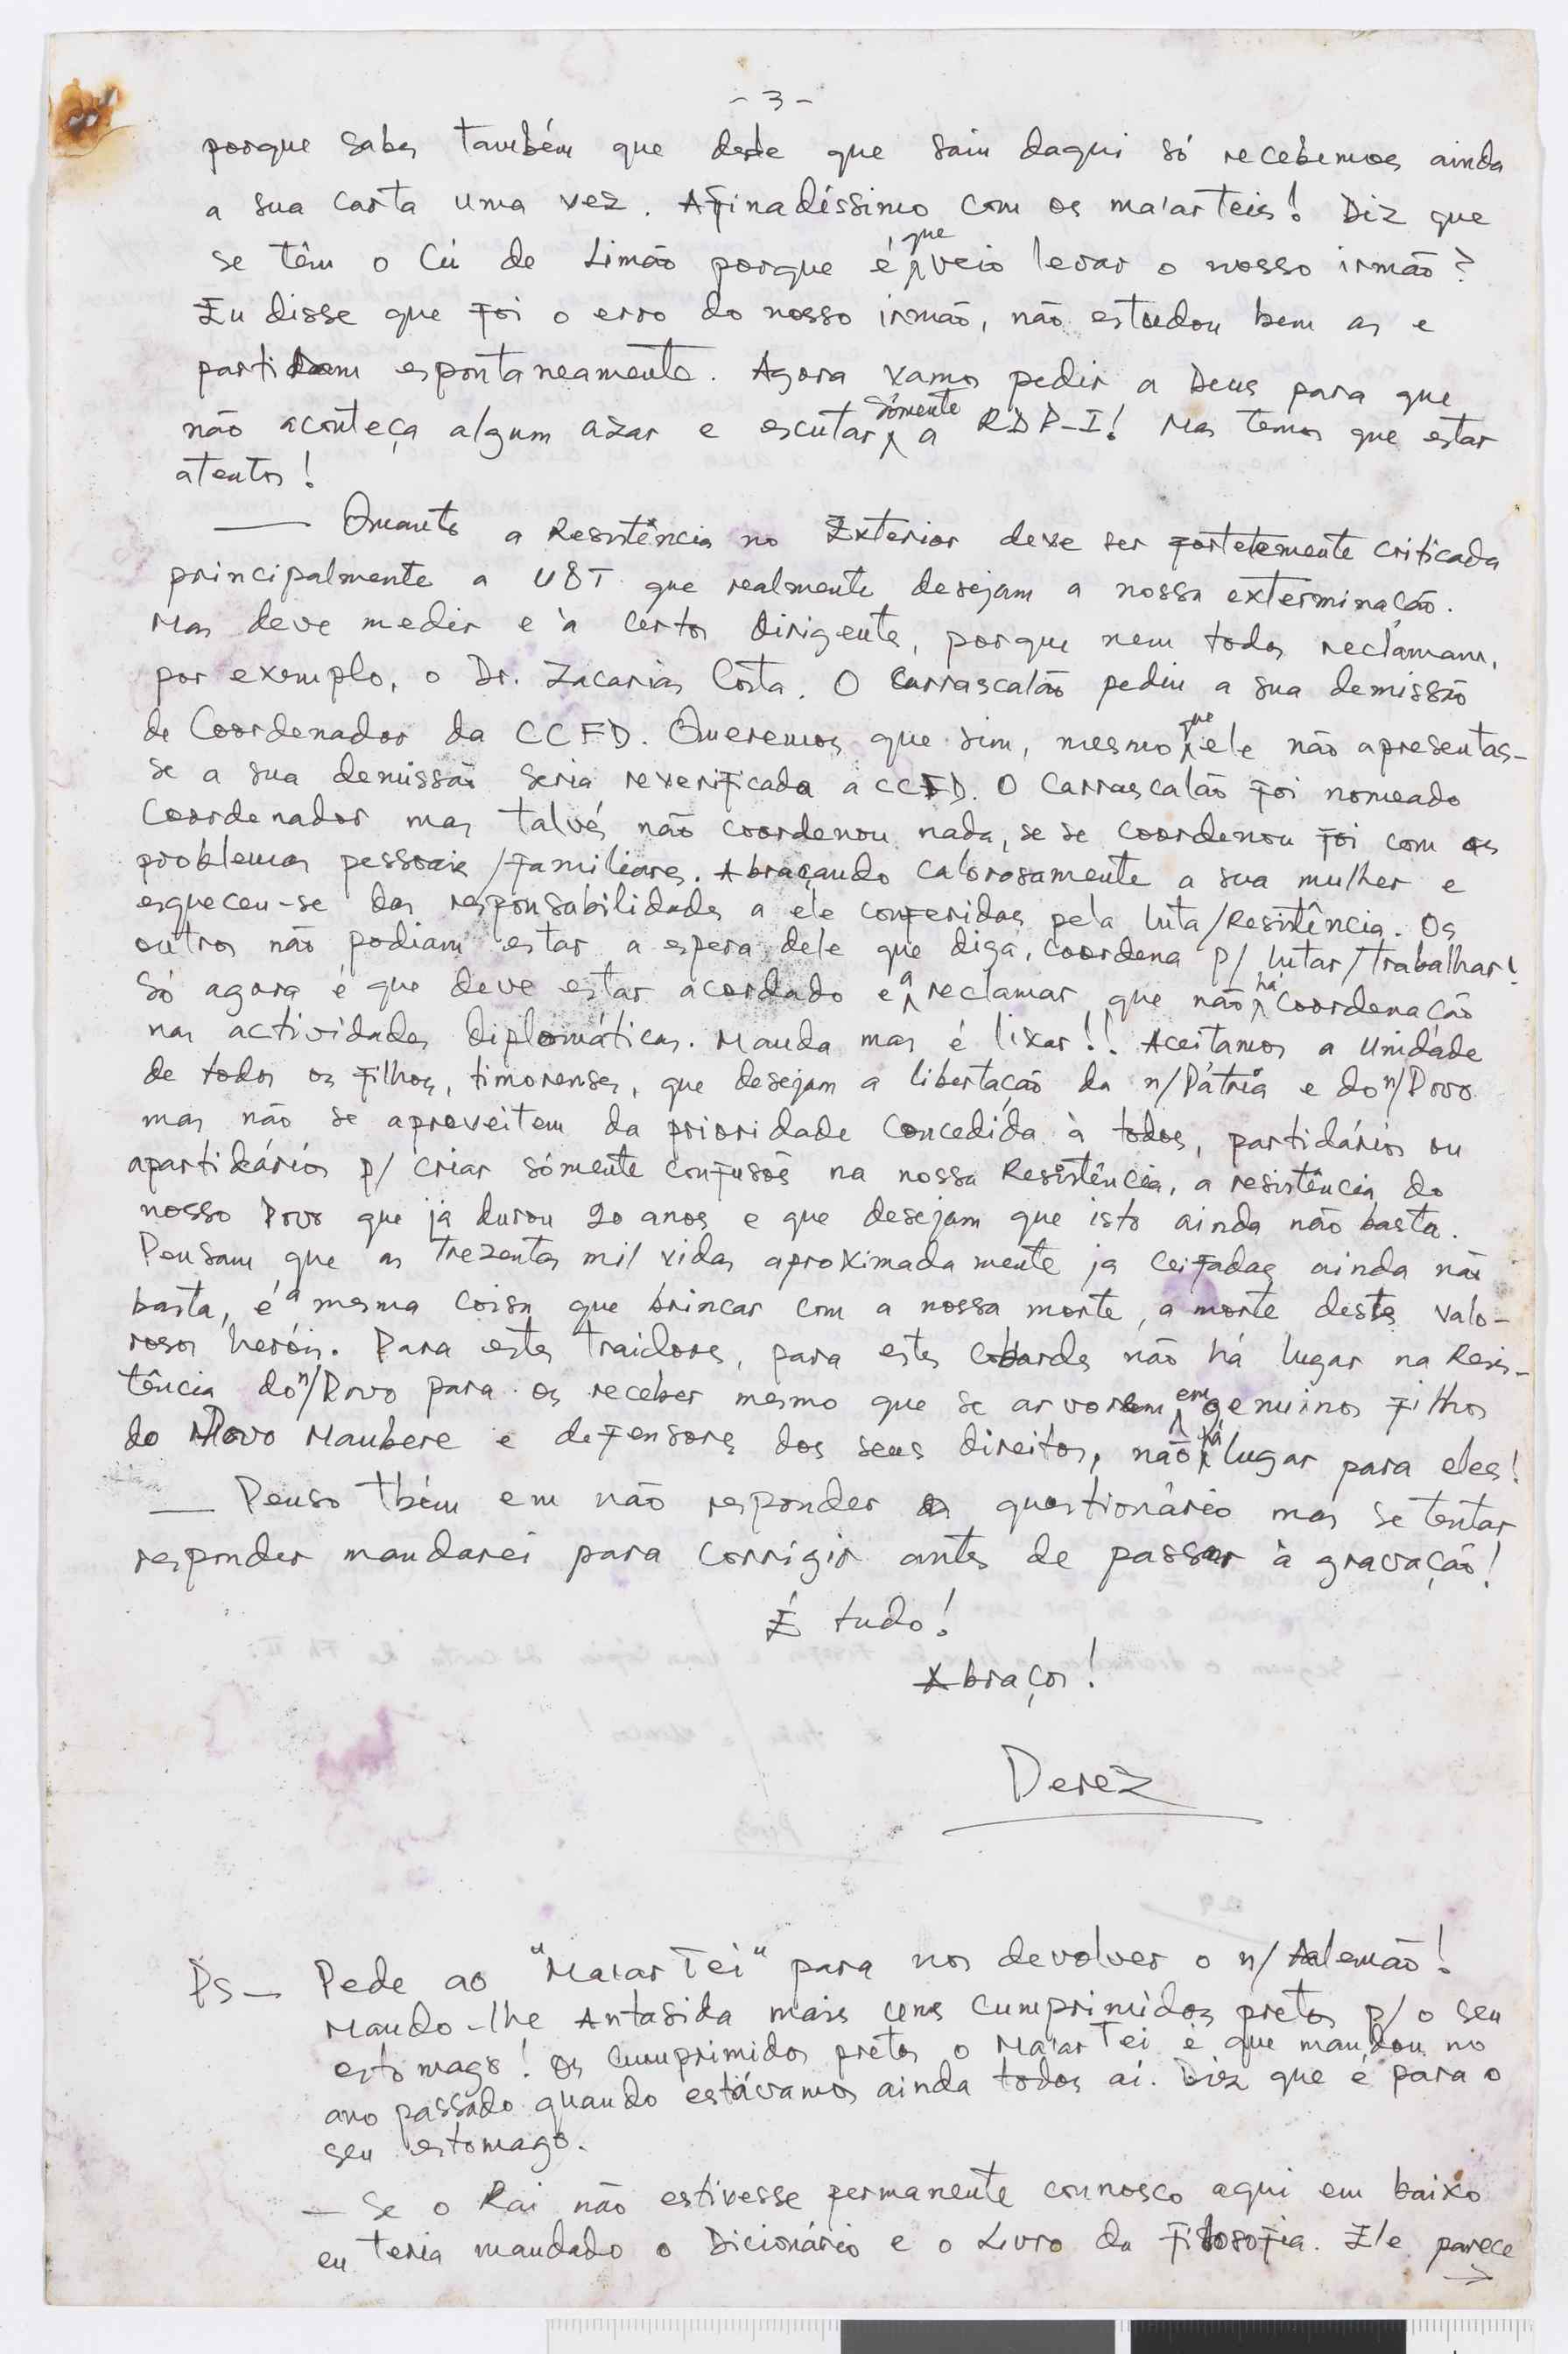 - 3 -
porque sabes também que desde que saiu daqui só recebemos ainda
a sua carta uma vez. Afinadíssimo com os ma'arteis! Diz que
se têm o Cú de Limão porque é que veio levar o nosso irmão?
Eu disse que foi o erro do nosso irmão, não estudou bem as e
partiram espontaneamente. Agora vamos pedir a Deus para que
não aconteça algum azar e escutar sómente a RDP-I! Mas temos que estar
atentos!
— Quanto a Resistência no Exterior deve ser fortetemente criticada
principalmente a UDT que realmente desejam a nossa exterminação.
Mas deve medir e à certos dirigentes, porque nem todos reclamam,
por exemplo, o Dr. Zacarias Costa. O Carrascalão pediu a sua demissão
de Coordenador da CCFD. Queremos que sim, mesmo que ele não apresentas-
se a sua demissão seria reverificada a CCFD. O Carrascalão foi nomeado
Coordenador mas talvés não coordenou nada, se se coordenou foi com os
problemas pessoais/familiares. Abraçando calorosamente a sua mulher e
esqueceu-se das responsabilidades a ele conferidas pela luta/Resistência. Os
outros não podiam estar a espera dele que diga, coordena p/ lutar/trabalhar!
Só agora é que deve estar acordado e a reclamar que não há Coordenação
nas actividades diplomáticas. Manda mas é lixar!! Aceitamos a Unidade
de todos os filhos, timorenses, que desejam a libertação da n/Pátria e do n/Povo
mas não se aproveitem da prioridade concedida à todos, partidários ou
apartidários p/ criar sómente confusões na nossa Resistência, a resistência do
nosso Povo que já durou 20 anos e que desejam que isto ainda não basta.
Pensam que as trezentas mil vidas aproximadamente ja ceifadas ainda não
basta, é a mesma coisa que brincar com a nossa morte, a morte destes valo-
rosos heróis. Para estes traidores, para estes cobardes não há lugar na Resis-
tência do n/Povo para os receber mesmo que se arvorem em genuinos filhos
do Povo Maubere e defensores dos seus direitos, não há lugar para eles!
— Penso tbém em não responder os questionário mas se tentar
responder mandarei para corrigir antes de passar à gravação!
É tudo!
Abraços!
Perez
PS — Pede ao "Ma'ar Tei" para nos devolver o n/Alemão!
Mando-lhe Antasida mais uns cumprimidos pretos p/ o seu
estomago! Os cumprimidos pretos o Ma'ar Tei é que mandou no
ano passado quando estávamos ainda todos aí. Diz que é para o
seu estomago.
— Se o Rai não estivesse permanente connosco aqui em baixo
eu teria mandado o Dicionário e o Livro da Filosofia. Ele parece
→